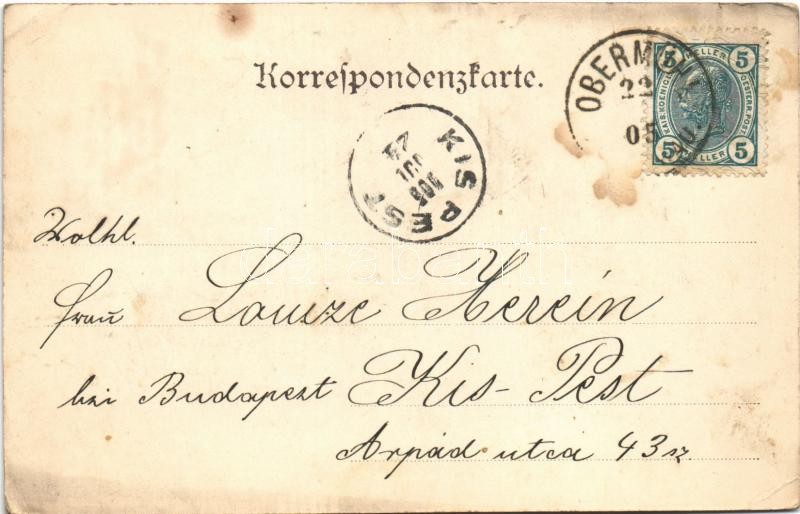 Korrespondenzkarte.
OBERM
22
05
5 HELLER 5
KAIS. KOENIGL.
OESTERR. POST
5 HELLER 5
KISPEST
905 JUL 24
Wolhl.
Frau Louize Herein
bei Budapest Kis-Pest
Arpád utca 43 sz